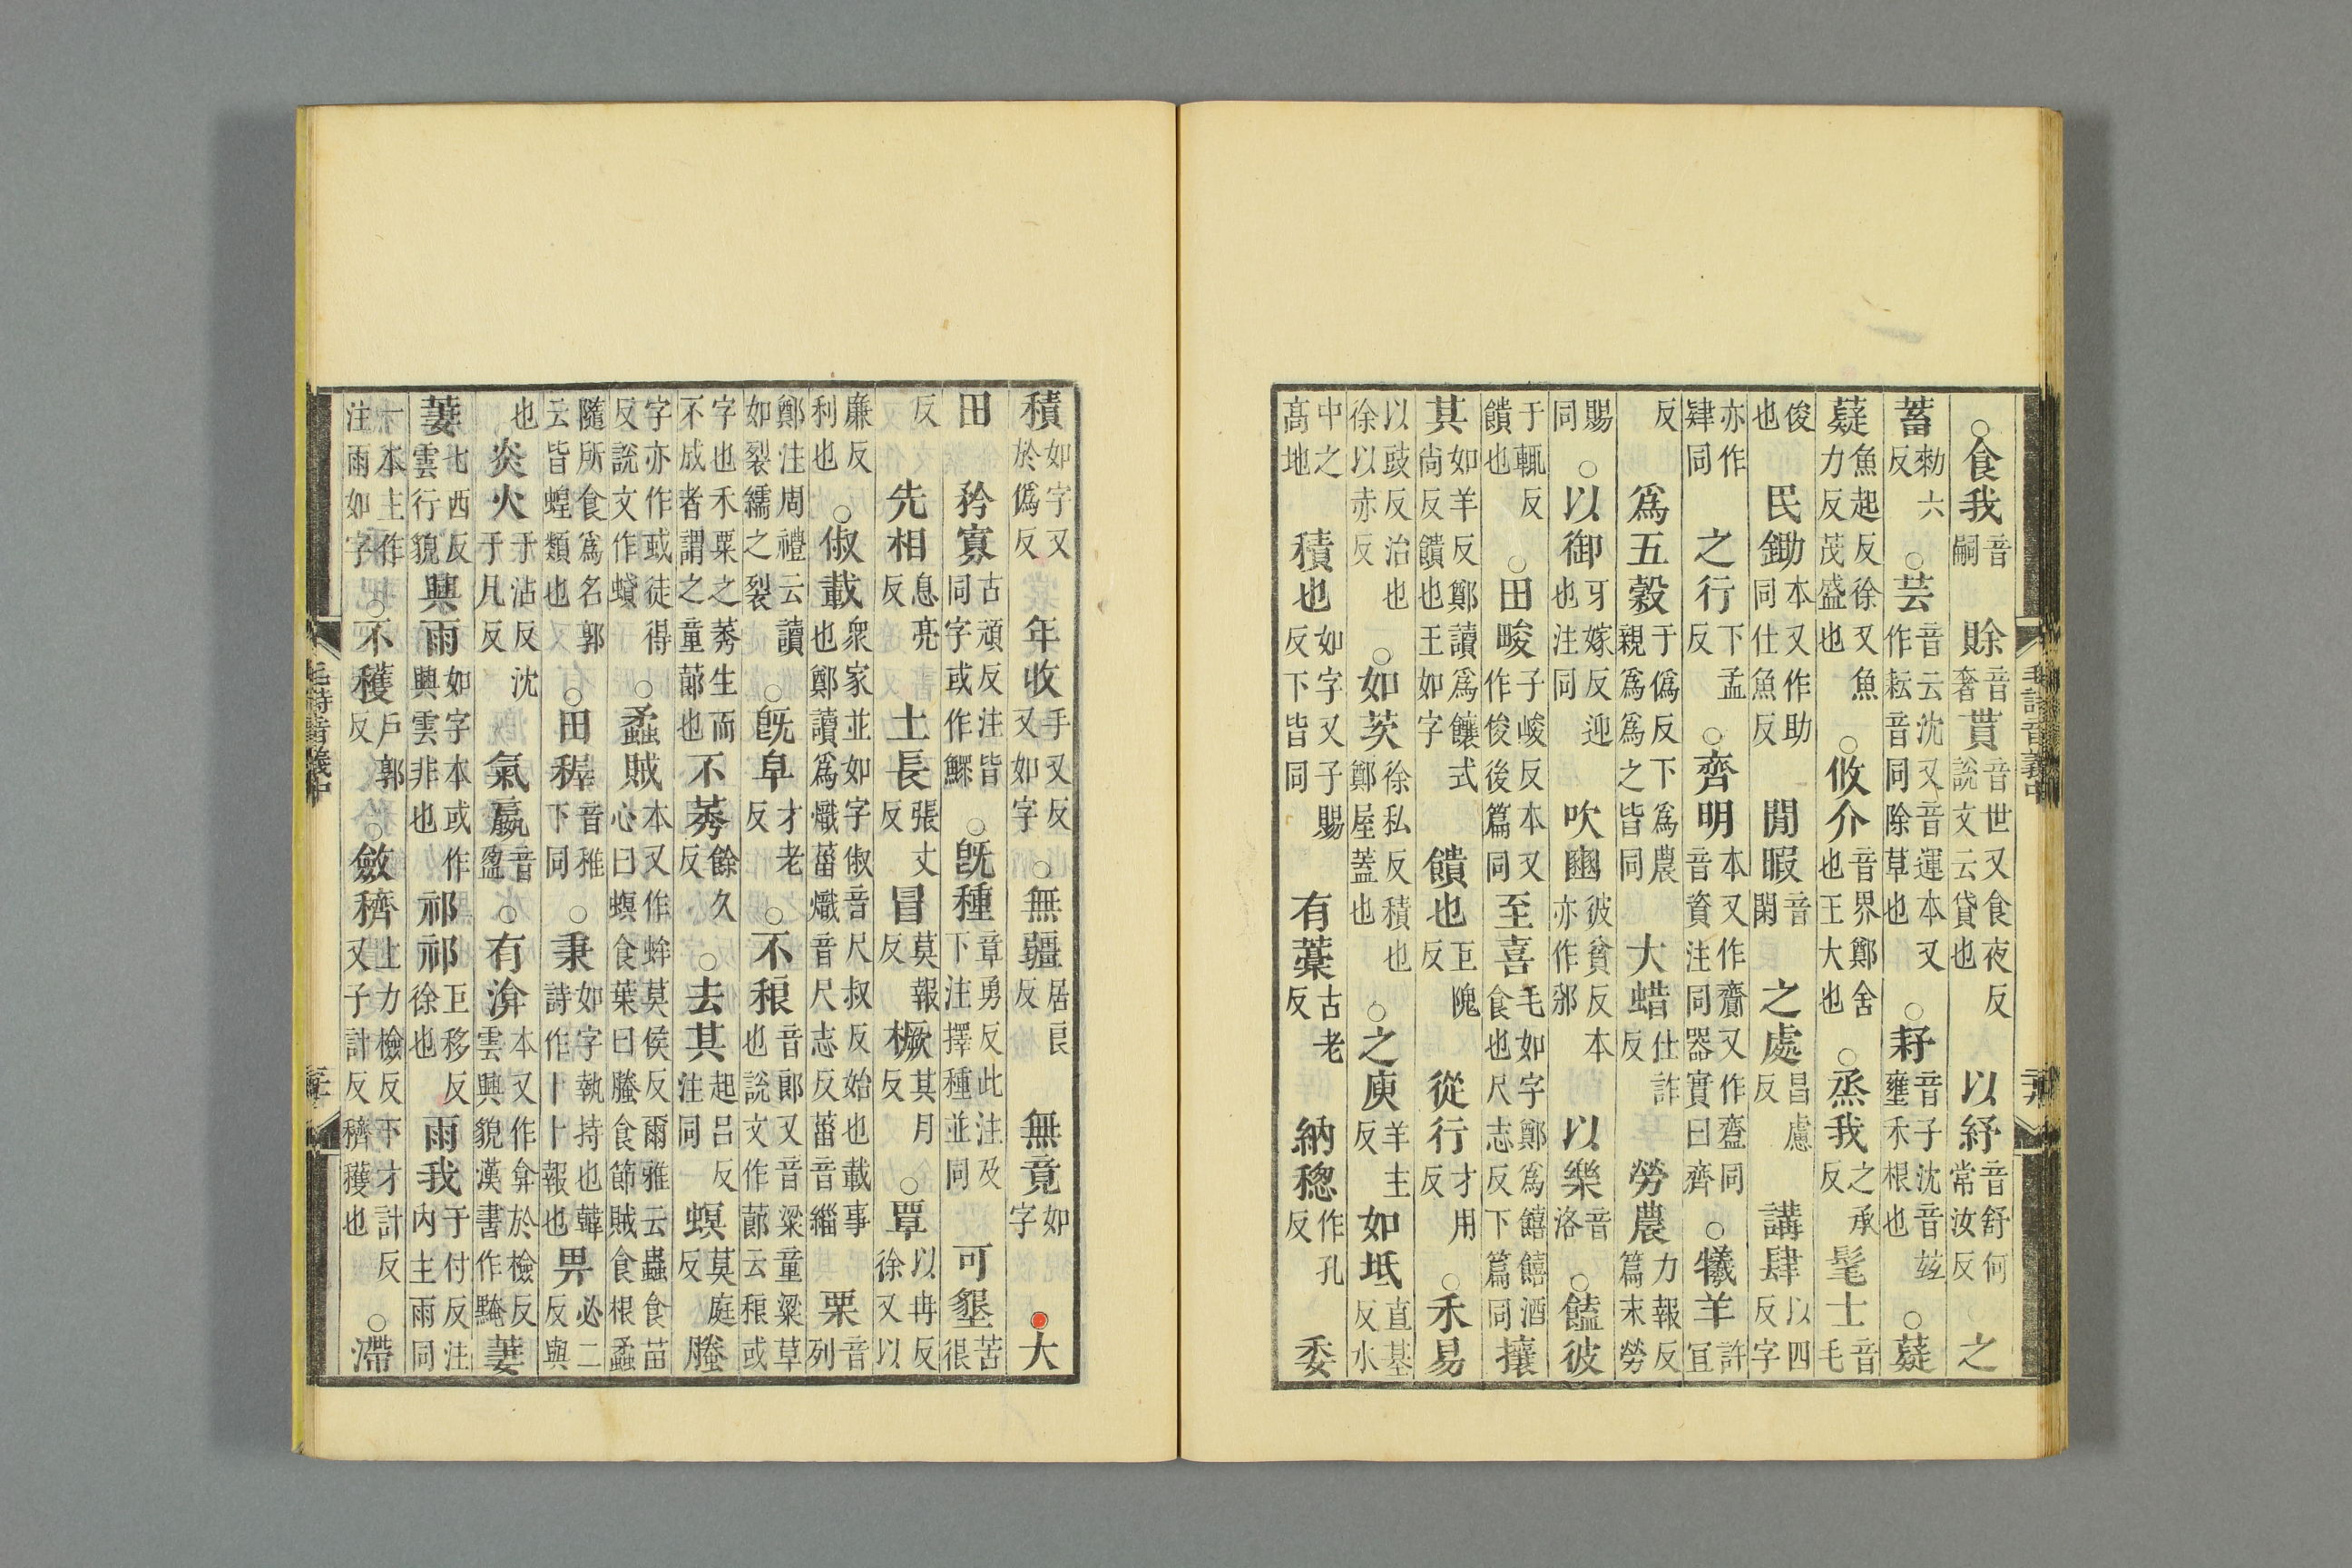 ○食我音嗣賖音奢貰音世又食夜反說文云貸也以紓音舒何常汝反之
蓄勑六反○芸音云沈又音運本又作耘音同除草也○耔音子沈音玆壅禾根也○薿
薿魚起反徐又魚力反茂盛也○攸介音界鄭舍也王大也○烝我之承反髦士音毛
俊也民鋤本又作助同仕魚反閒暇音閑之處昌慮反講肆以四反字
亦作肄同之行下孟反○齊明本又作齍又作齎同音資注同器實曰齊○犧羊許宜
反爲五穀于僞反下爲農親爲爲之皆同大蜡仕詐反勞農力報反篇末勞
賜同○以御牙嫁反迎也注同吹豳彼貧反本亦作邠以樂音洛○饁彼
于輒反饋也○田畯子峻反本又作俊後篇同至喜毛如字鄭爲饎饎酒食也尺志反下篇同攘
其如羊反鄭讀爲饟式尚反饋也王如字饋也巨隗反從行才用反○禾易
以豉反治也徐以赤反○如茨徐私反積也鄭屋蓋也○之庾羊主反如坻直基反水
中之高地積也如字又子賜反下皆同有藁古老反納稯作孔反委
積如字又於僞反年收手又反又如字○無疆居良反無竟如字●大
田矜寡古頑反注皆同字或作鰥○既種章勇反此注及下注擇種並同可墾苦很
反先相息亮反土長張丈反冒莫報反橛其月反○覃以冉反徐又以
廉反利也○俶載衆家並如字俶音尺叔反始也載事也鄭讀爲熾菑熾音尺志反菑音緇栗音列
鄭注周禮云讀如裂繻之裂○既皁才老反○不稂音郎又音梁童粱草也說文作蓈云稂或
字也禾粟之莠生而不成者謂之童蓈也不莠餘久反○去其起呂反注同螟莫庭反螣
字亦作或徒得反說文作蟘○蟊賊本又作蛑莫侯反爾雅云蟲食苗心曰螟食葉曰螣食節賊食根蟊
隨所食爲名郭云皆蝗類也○田穉音稚下同○秉如字執持也韓詩作卜卜報也畀必二反與
也炎火于沾反沈于凡反氣嬴音盈○有渰本又作弇於檢反雲興貌漢書作黤萋
萋七西反雲行貌興雨如字本或作興雲非也祁祁巨移反徐也雨我于付反注內主雨同
一本主作注雨如字○不穫戶郭反○斂穧上力檢反下才計反又子計反穧穫也○滯
毛詩音義中
毛詩音義中